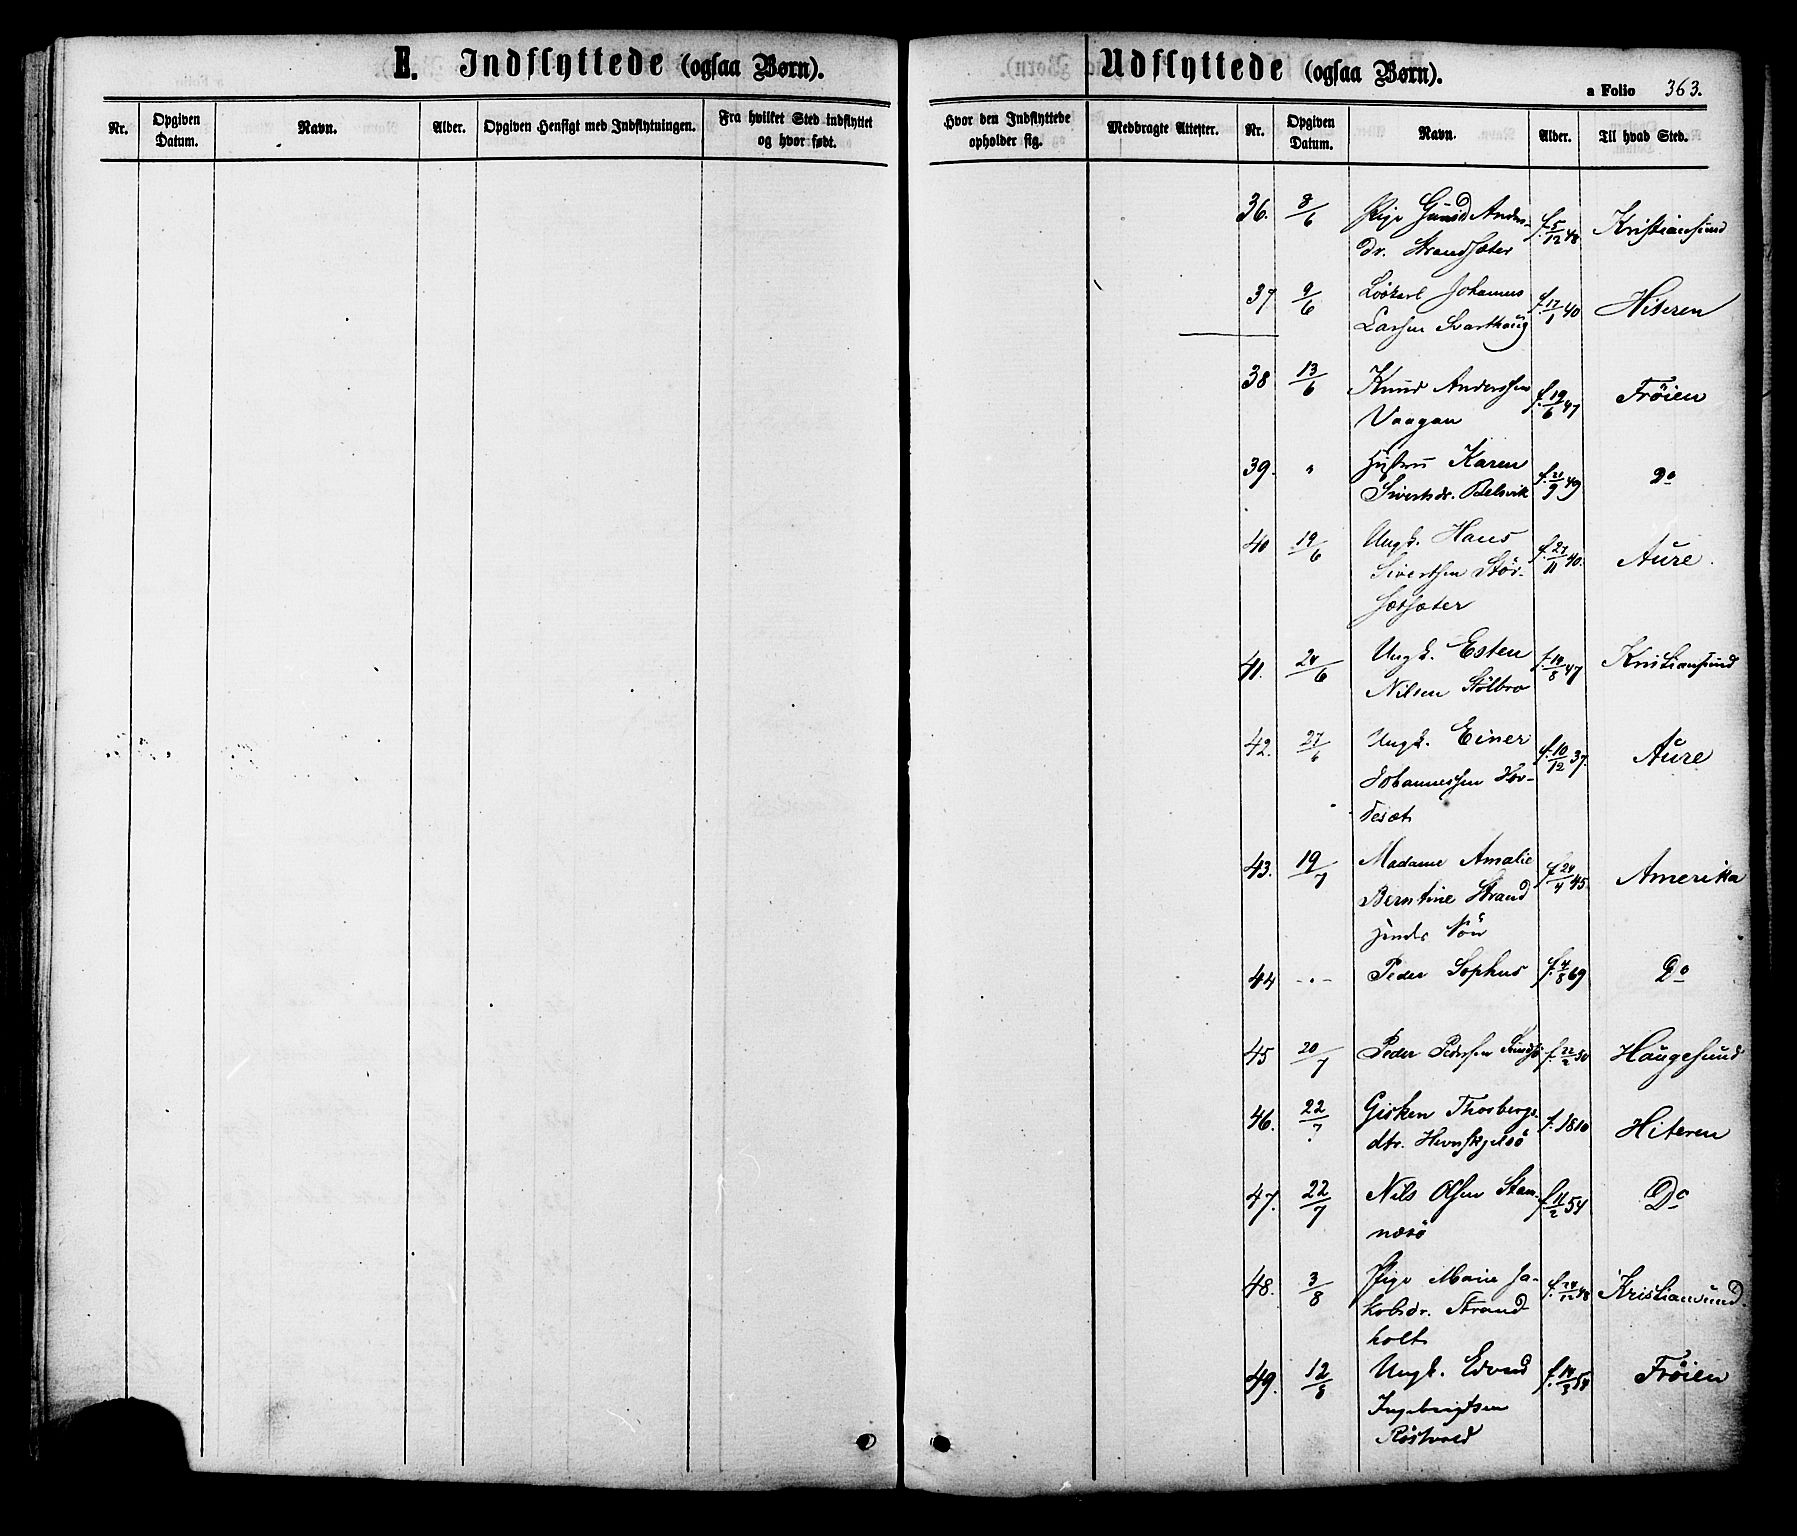 E. Indflyttede (ogsaa Børn).
Nr. Opgiven Datum. Navn. Alder. Opgiven Hensigt med Indflytningen. Fra hvilket Sted indflyttet og hvor født.
Udflyttede (ogsaa Børn).
a Folio 363.
Hvor den Indflyttede opholder sig. Medbragte Attester. Nr. Opgiven Datum. Navn. Alder. Til hvad Sted.
36. 8/6 Pige Gunild Anders- f. 5/12 48 Kristiansund
dr. Strandsæter
37 9/6 Löskarl Johannes f. 17/1 40 Hiteren
Larsen Svarthaug
38 13/6 Knud Anderssen f. 19/6 47 Fröien
Vaagan
39. " Hustru Karen f. 21/9 49 Do
Sivertsdr. Belsvik
40 19/6 Ungk. Hans f. 27/11 40. Aure.
Sivertsen Stör-
sætsæter
41. 24/6 Ungk. Esten f. 14/8 47 Kristiansund
Nilsen Stölbro
42. 27/6 Ungk. Einer f. 10/12 37. Aure
Johannessen Hor-
desæt
43. 19/7 Madame Amalie f. 24/4 45. Amerika
Berntine Strand
hendes Sön
44 -"- Peder Sophus f. 4/8 69 Do
45 20/7 Peder Pedersen f. 22/2 50 Haugesund
46. 22/7 Gisken Thorbergs- f. 1810 Hiteren
dtr. Hevnskjelsö
47. 22/7 Nils Olsen Stam- f. 11/2 54 Do
næsö
48. 3/8 Pige Marie Ja- f. 24/12 48 Kristiansund.
kobsdr. Strand-
holt
49. 12/8 Ungk. Edvard f. 14/3 54 Fröien
Ingebrigtsen
Röstvold